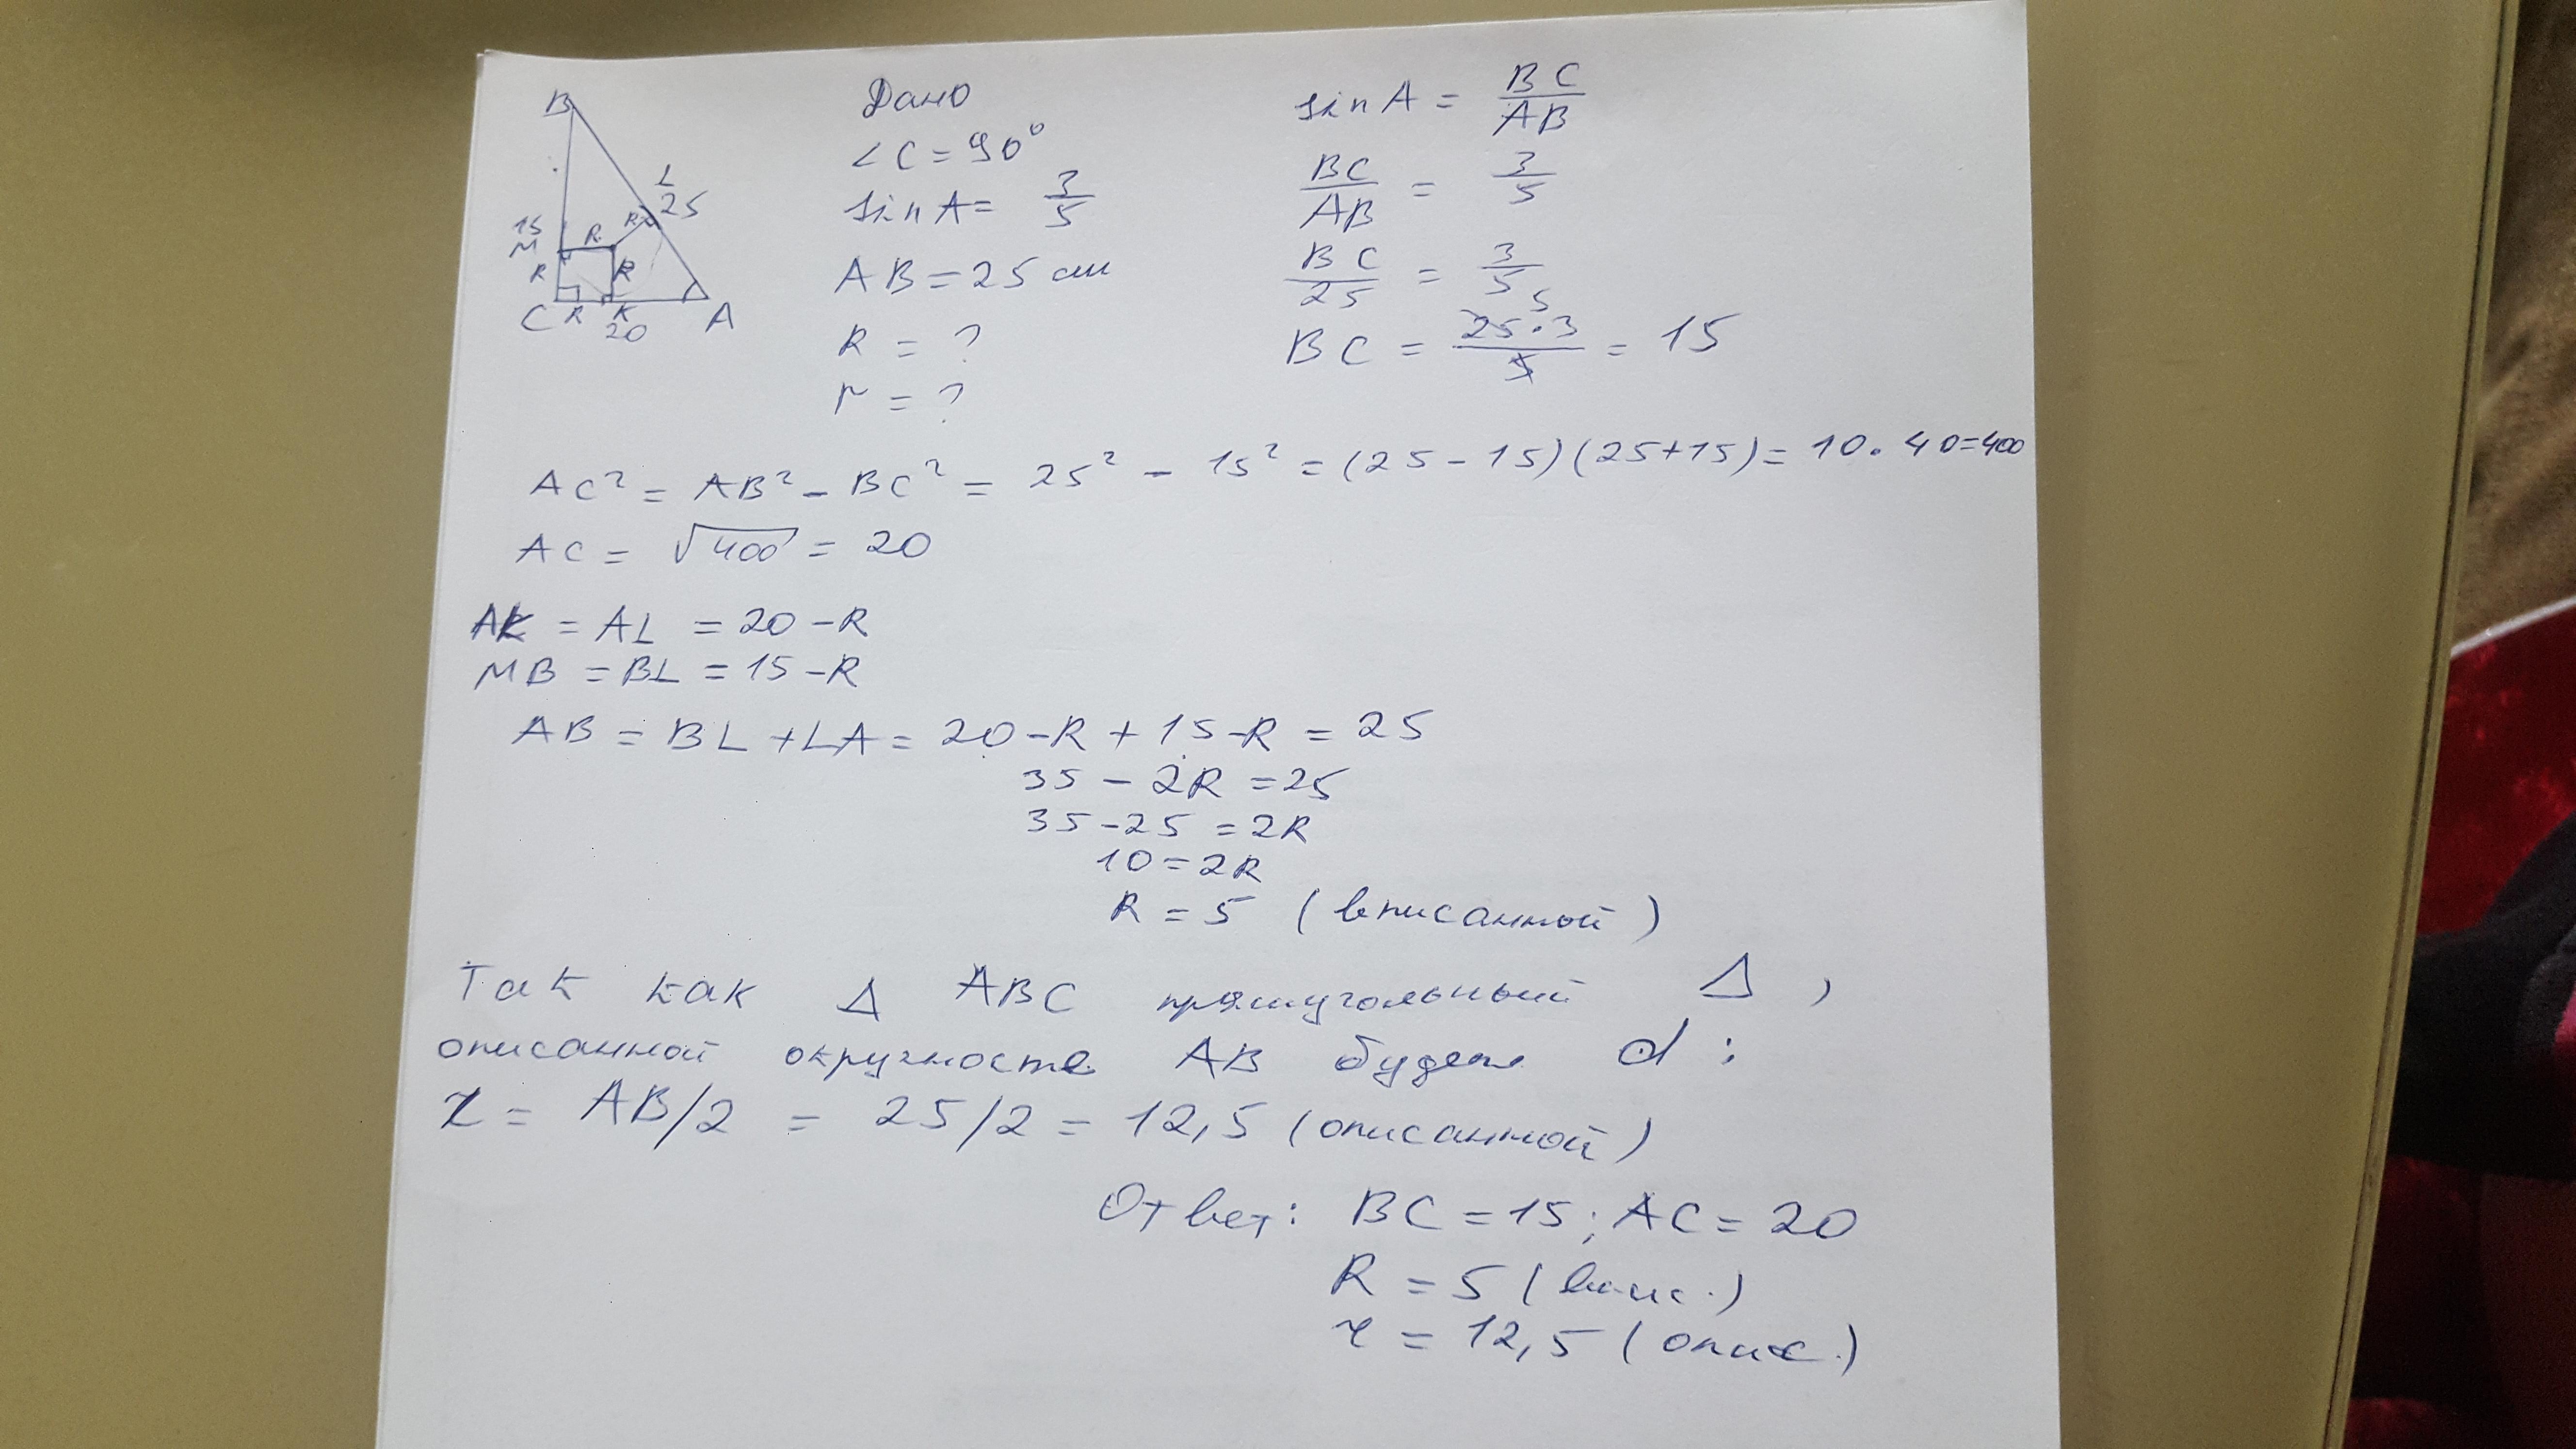 B
L
25
15
M
R
R
R
R
C
R
K
A
20
Дано
∠C = 90°
sin A = 3/5
AB = 25 см
R = ?
r = ?
sin A = BC/AB
BC/AB = 3/5
BC/25 = 3/5
BC = 25·3/5 = 15
5
AC² = AB² - BC² = 25² - 15² = (25-15)(25+15) = 10·40=400
AC = √400 = 20
AK = AL = 20-R
MB = BL = 15-R
AB = BL + LA = 20-R + 15-R = 25
35 - 2R = 25
35-25 = 2R
10 = 2R
R = 5 (вписанной)
Так как Δ ABC прямугольный Δ,
описанной окружности AB будет d;
r = AB/2 = 25/2 = 12,5 (описанной)
Ответ: BC = 15; AC = 20
R = 5 (впис.)
r = 12,5 (опис.)